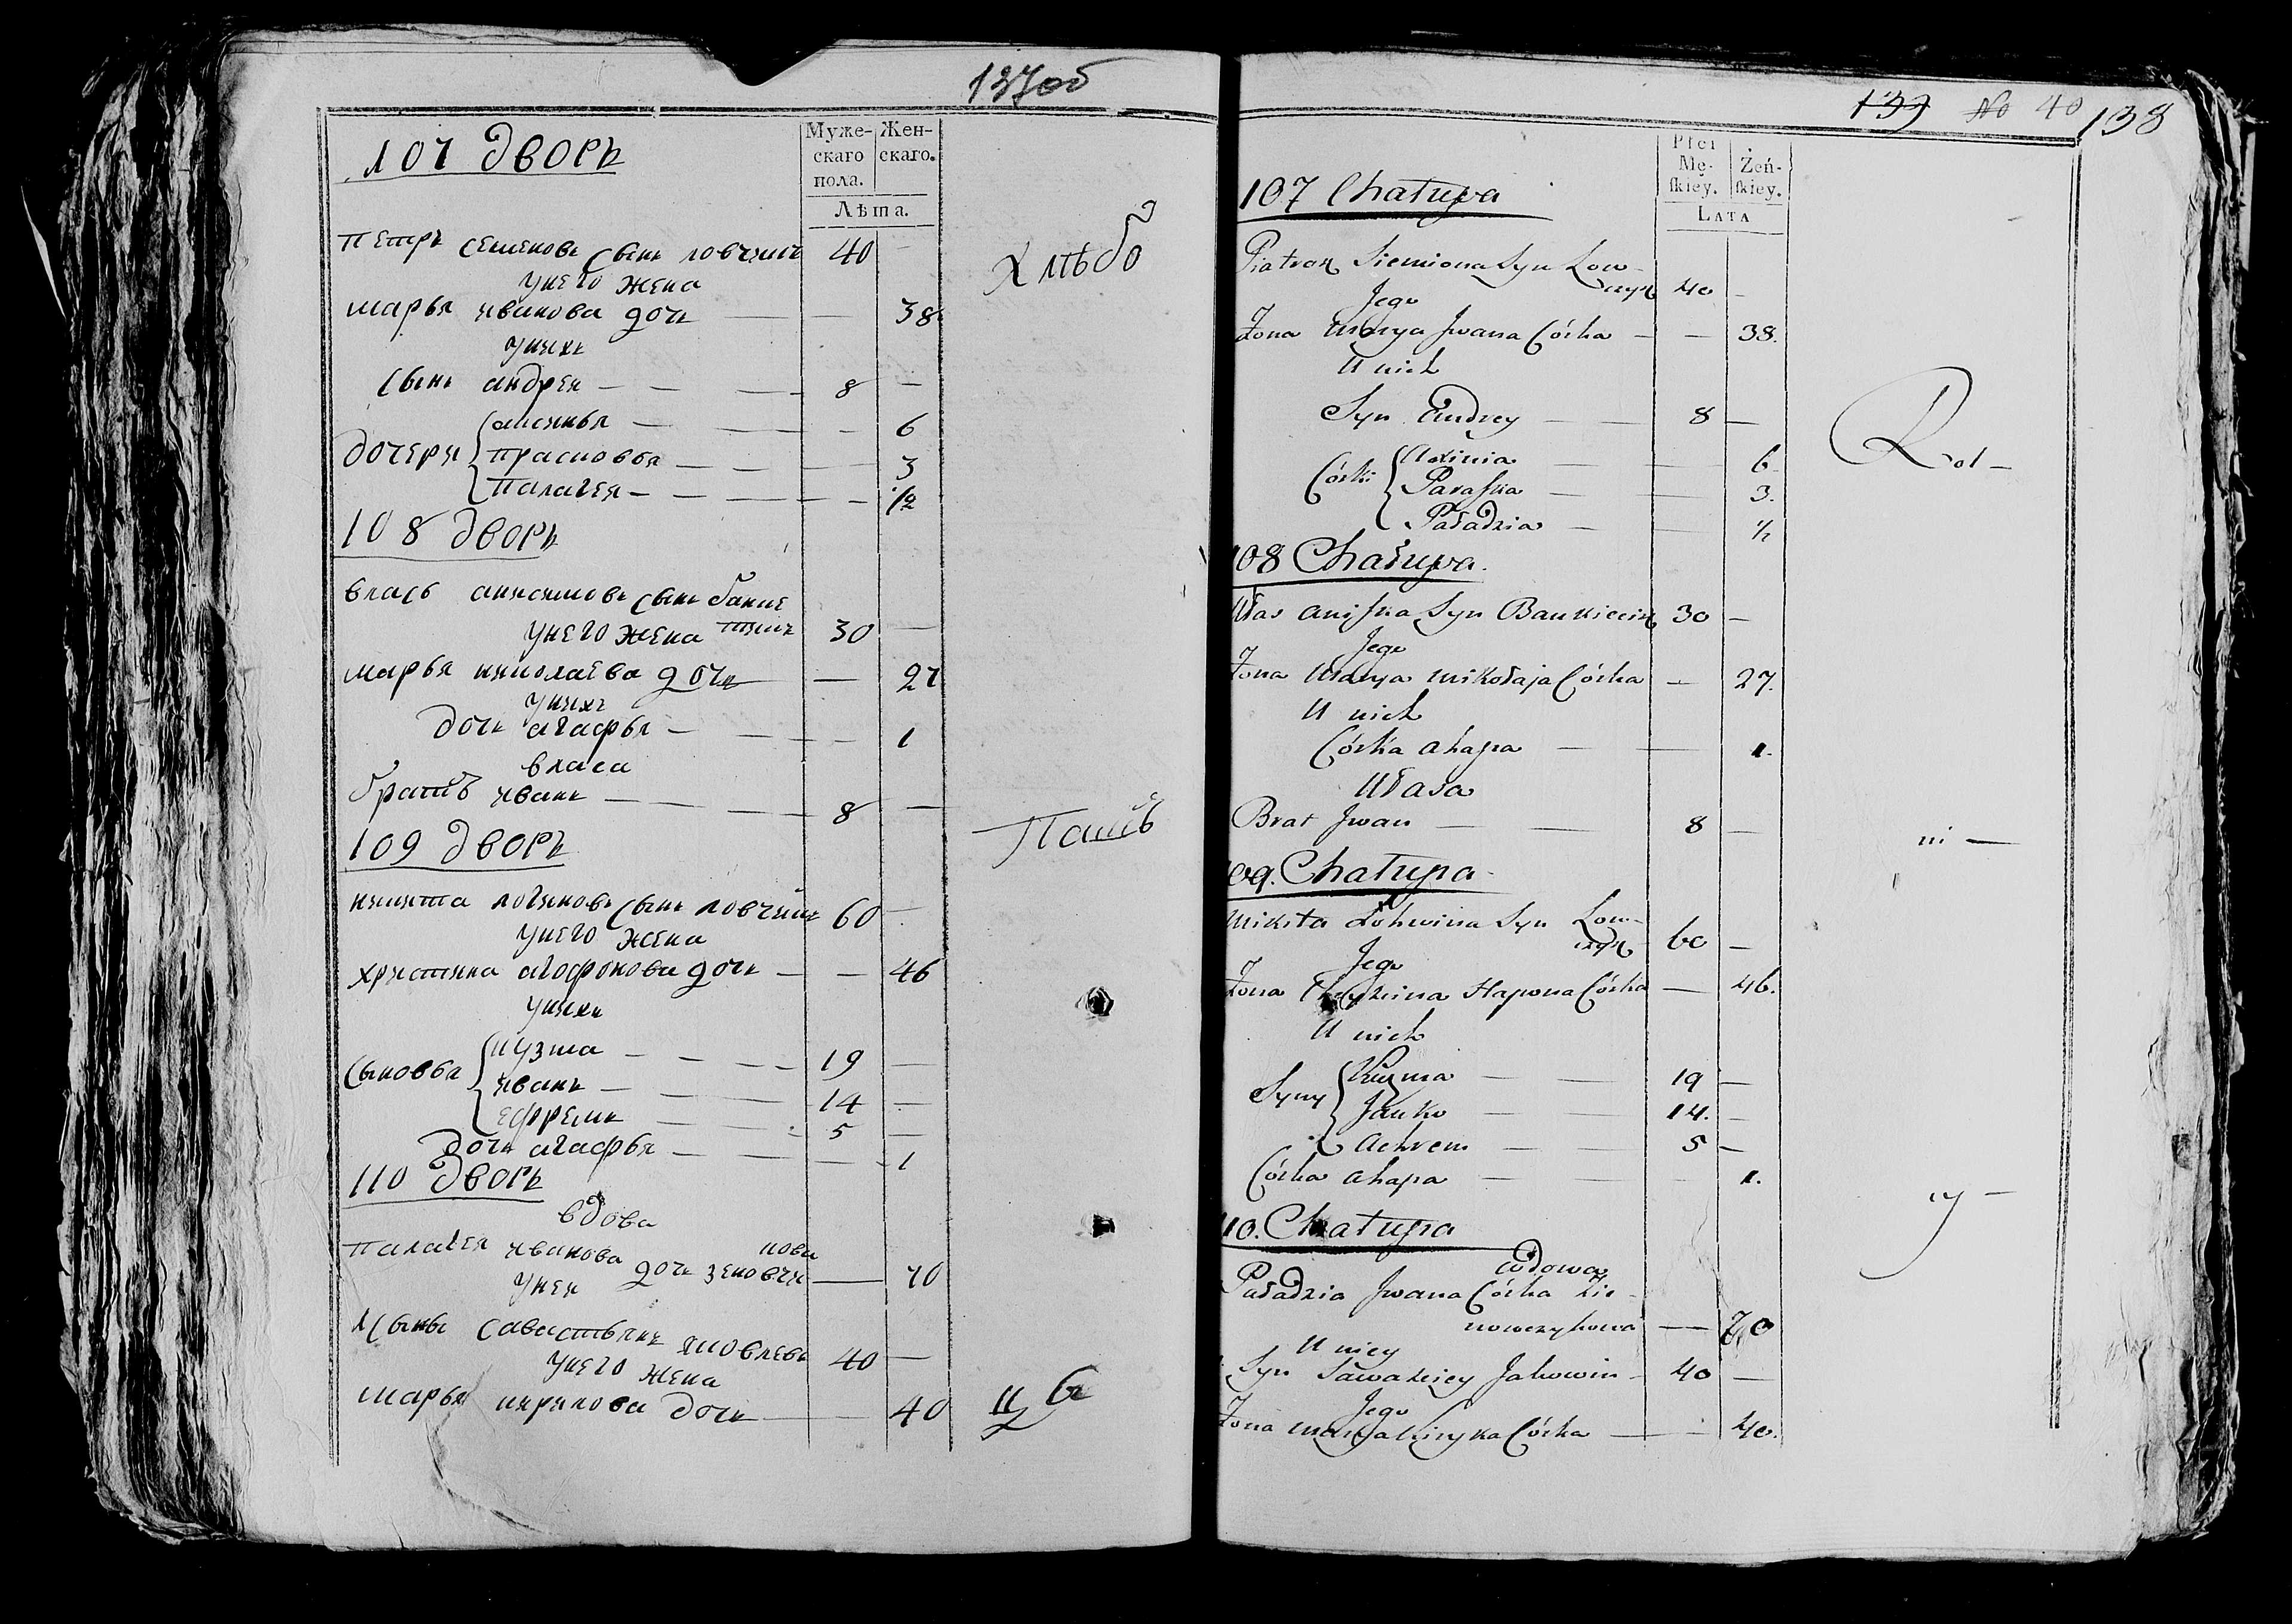 137об
107 Дворъ
Муже- Жен-
скаго скаго.
пола.
Лѣта.
Петръ Семеновъ Сынъ Ловчицъ 40 —
у него жена
марья иванова дочь — — 38
у нихъ
Сынъ андреи — — — 8 —
аксинья — — — 6
дочери прасковья — — — 3
палагея — — — — 1/2
Хлѣбо
108 Дворъ
власъ анисимовъ Сынъ банке
у него жена тичъ 30 —
марья николаева дочь — 27
у нихъ
дочь агафья — — — 1
власа
братъ иванъ — — — 8 —
109 Дворъ
Пашъ
никита логиновъ Сынъ ловчицъ 60 —
у него жена
христина агафонова дочь — — 46
у нихъ
кузма — — — 19 —
Сыновья иванъ — — — 14 —
ефремъ — — — 5 —
дочь агафья — — — 1
110 Дворъ
вдова
палагея иванова дочь зеновчи — 70
кова
у неи
Сынъ Савастьянъ яковлевъ 40 —
у него жена
марья кирилова дочь — — 40
цЪ
139 No 40 138
Płci
Mę- Żeń-
ſkiey. ſkiey.
LATA
107 Chałupa
Piatrok Siemiona Syn Łow-
czyc 40 —
Jego
Żona Marya Jwana Córka — — 38.
U nich
Syn Andrey — — 8 —
Axinia — — 6
Córki Paraſka — — 3.
Paładzia — — 1/2
Rol-
108 Chałupa.
Ułas Aniſka Syn Bankiewicz 30 —
Jego
Żona Marya Mikołaja Córka — 27.
U nich
Córka Ahapa — — 1.
Ułasa
Brat Jwan — — 8 —
ni —
109. Chałupa
Mikita Łohwina Syn Łow-
czyc 60 —
Jego
Żona Chryzina Hapona Córka — 46.
U nich
Kuzma — — 19 —
Syny Janko — — 14. —
Achrem — — 5 —
Córka Ahapa — — 1.
110. Chałupa
cy —
wdowa
Paładzia Jwana Córka Zie-
nowczykowa — 70
U niey
Syn Sawaściey Jakowin — 40 —
Jego
Żona Marya Kiryka Córka — — 40.